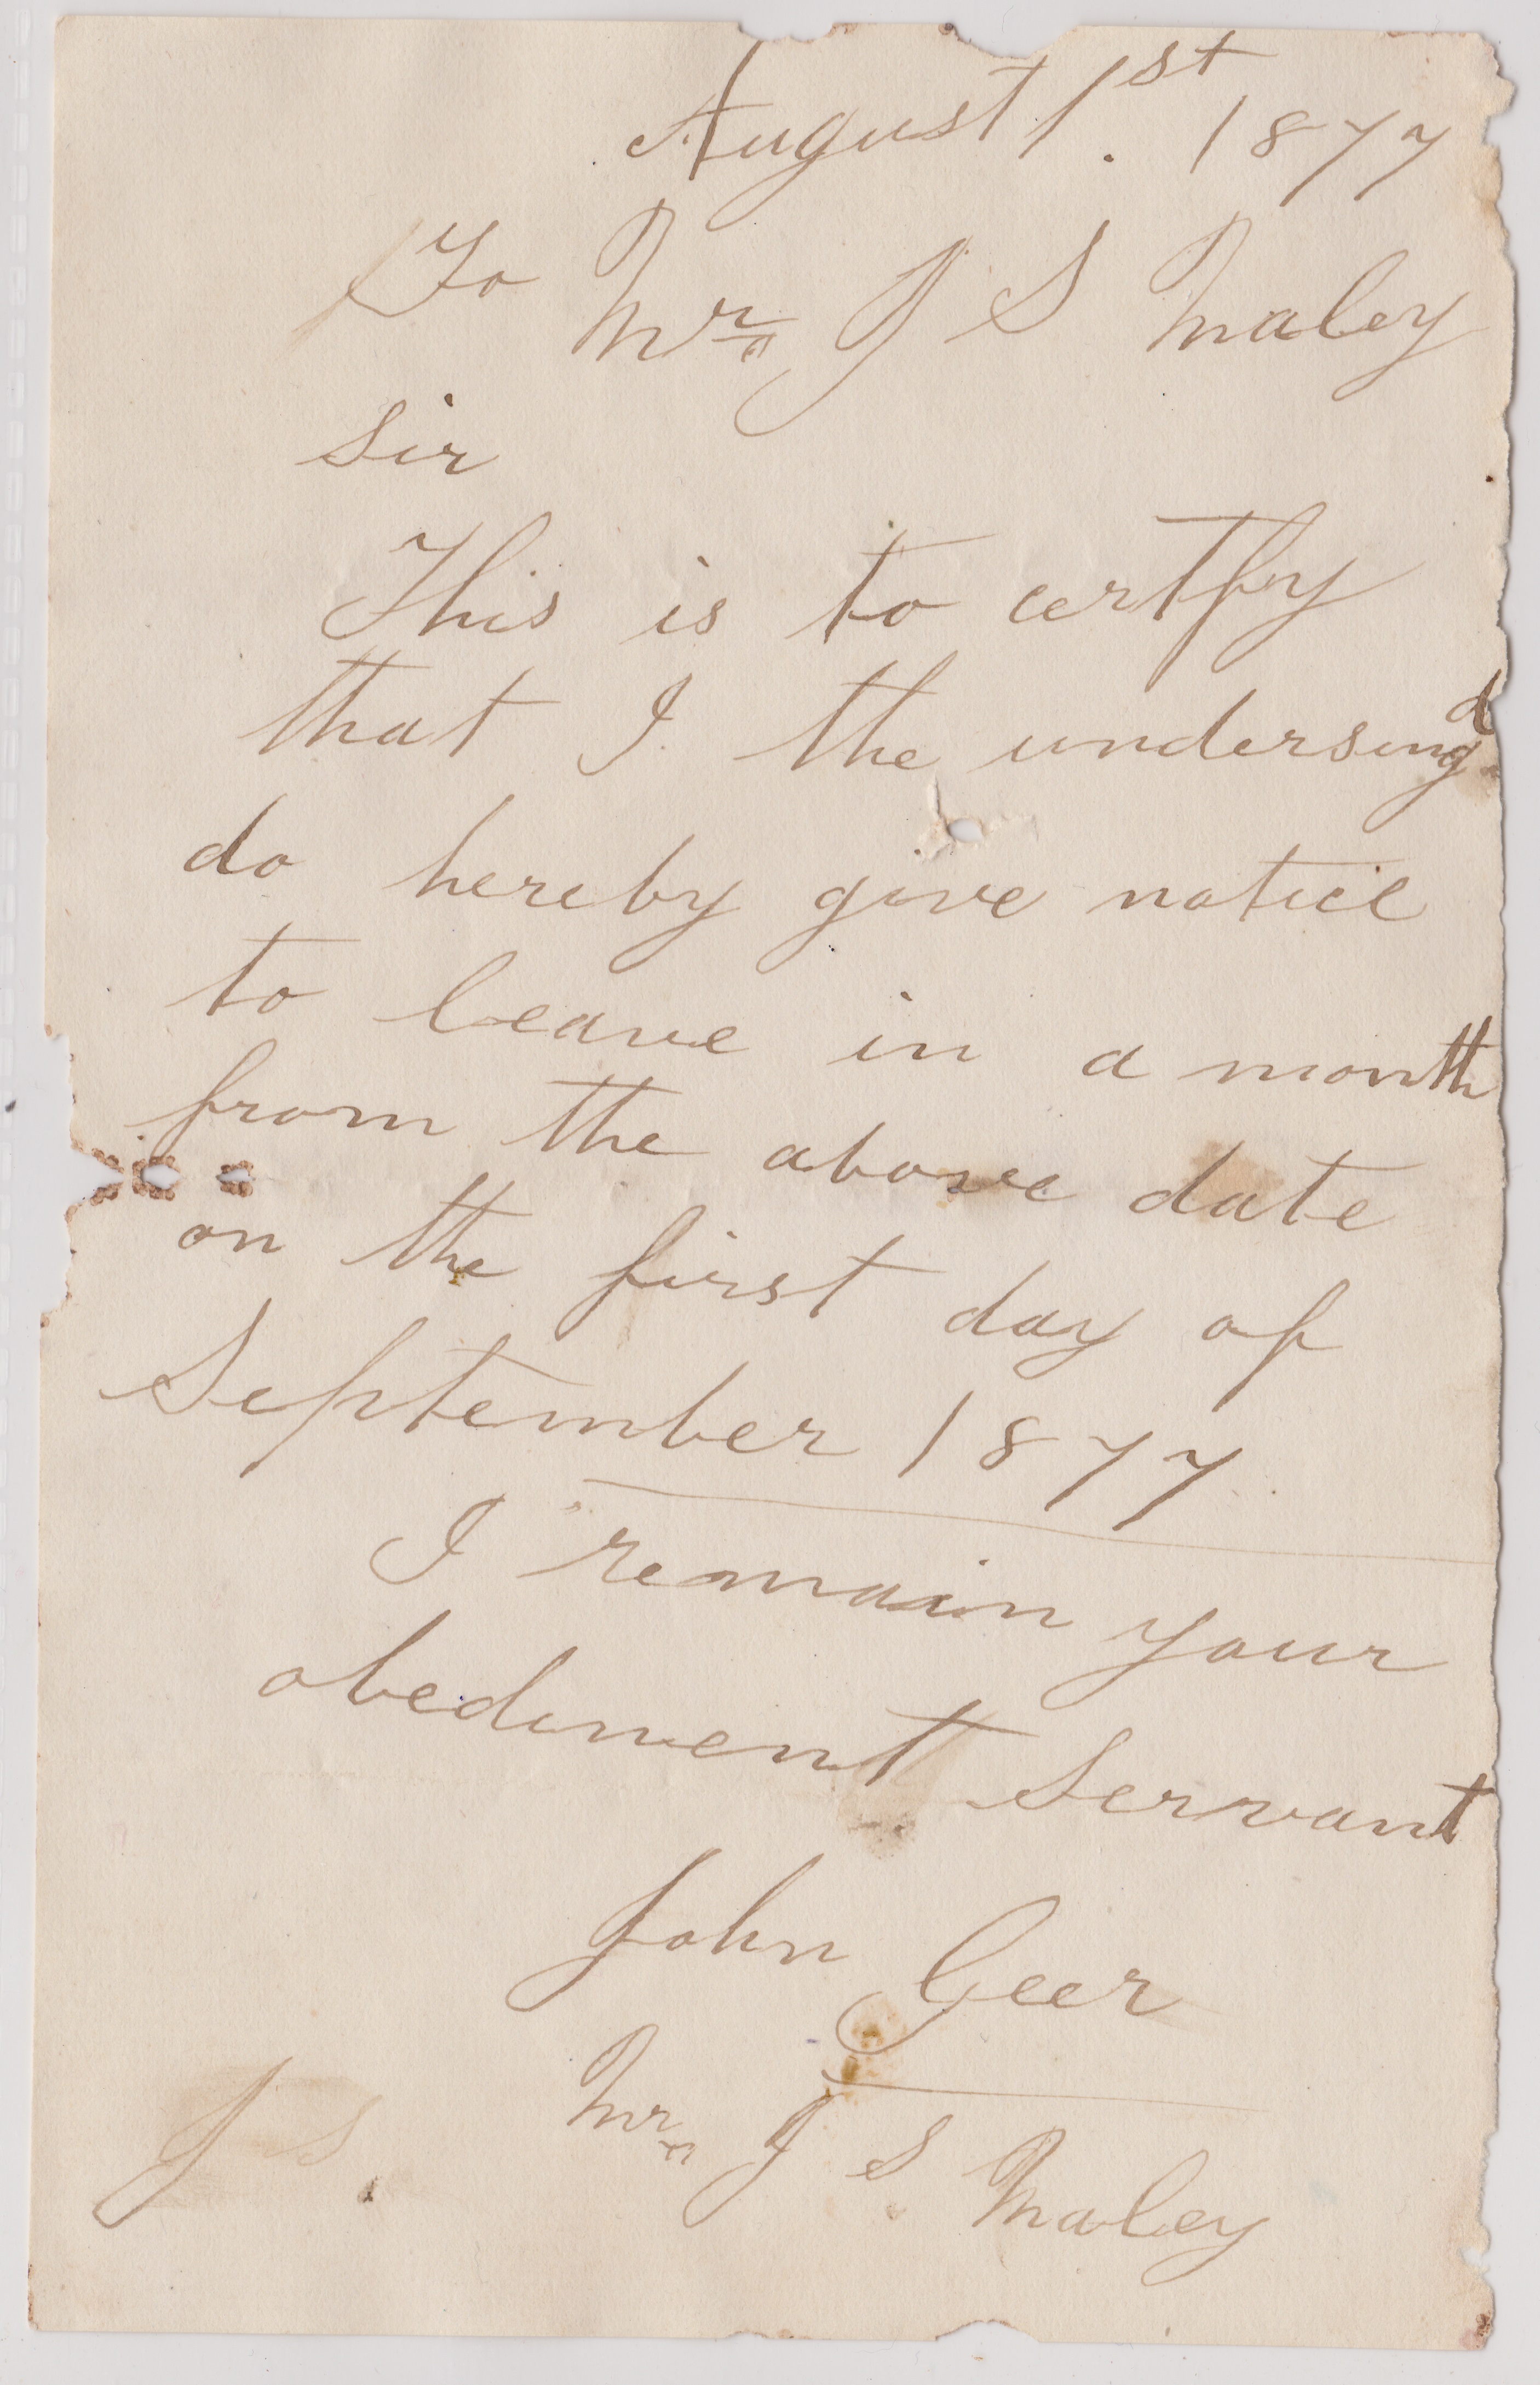 August 1st. 1877
To Mr. J S Maley
Sir
This is to certfy
that I the undersingd
do hereby give notice
to leave in a month
from the above date
on the first day of
September 1877
I remain your
obediment Servant
John Geer
Mr. J S Maley
J S